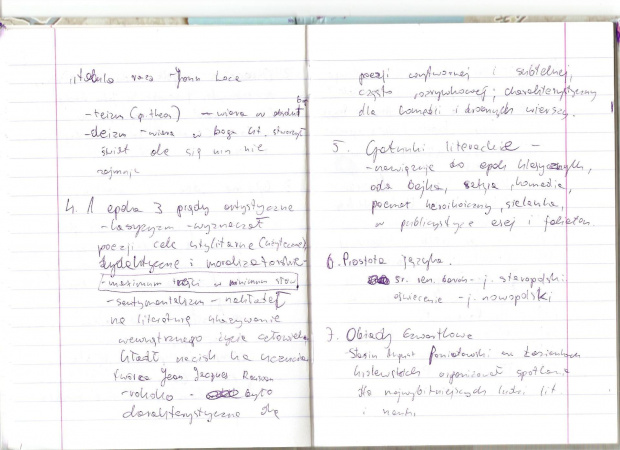 "tabula raza - John Loce
- teizm (g. theos) - wiara w
- deizm - wiara w boga kt. stworzył
świat ale się nim nie
zajmuje
4. 1 epoka 3 prądy artystyczne
- klasycyzm - wyznaczał
poezji cele utylitarne (użyteczne)
dydaktyczne i moralizatorskie
- maximum treści w minimum słów
- sentymentalizm - nakładał
na literaturę ukazywanie
wewnętrznego życia człowieka
kładł nacisk na uczucia
twórca Jean Jacques Rousseau
- rokoko - było
charakterystyczne dla
poezji wytwornej i subtelnej,
często rozrywkowej; charakterystyczny
dla komedii i drobnych wierszy.
5. Gatunki literackie -
- nawiązuje do epok klasycznych,
oda bajka, satyra, komedia,
poemat heroikomiczny, sielanka,
w publicystyce esej i felieton.
6. Prostota języka.
śr. ren. barok - j. staropolski
oświecenie - j. nowopolski
7. Obiady Czwartkowe
Stanisław Poniatowski w Łazienkach
królewskich organizował spotkania
dla najwybitniejszych ludzi lit.
i nauki